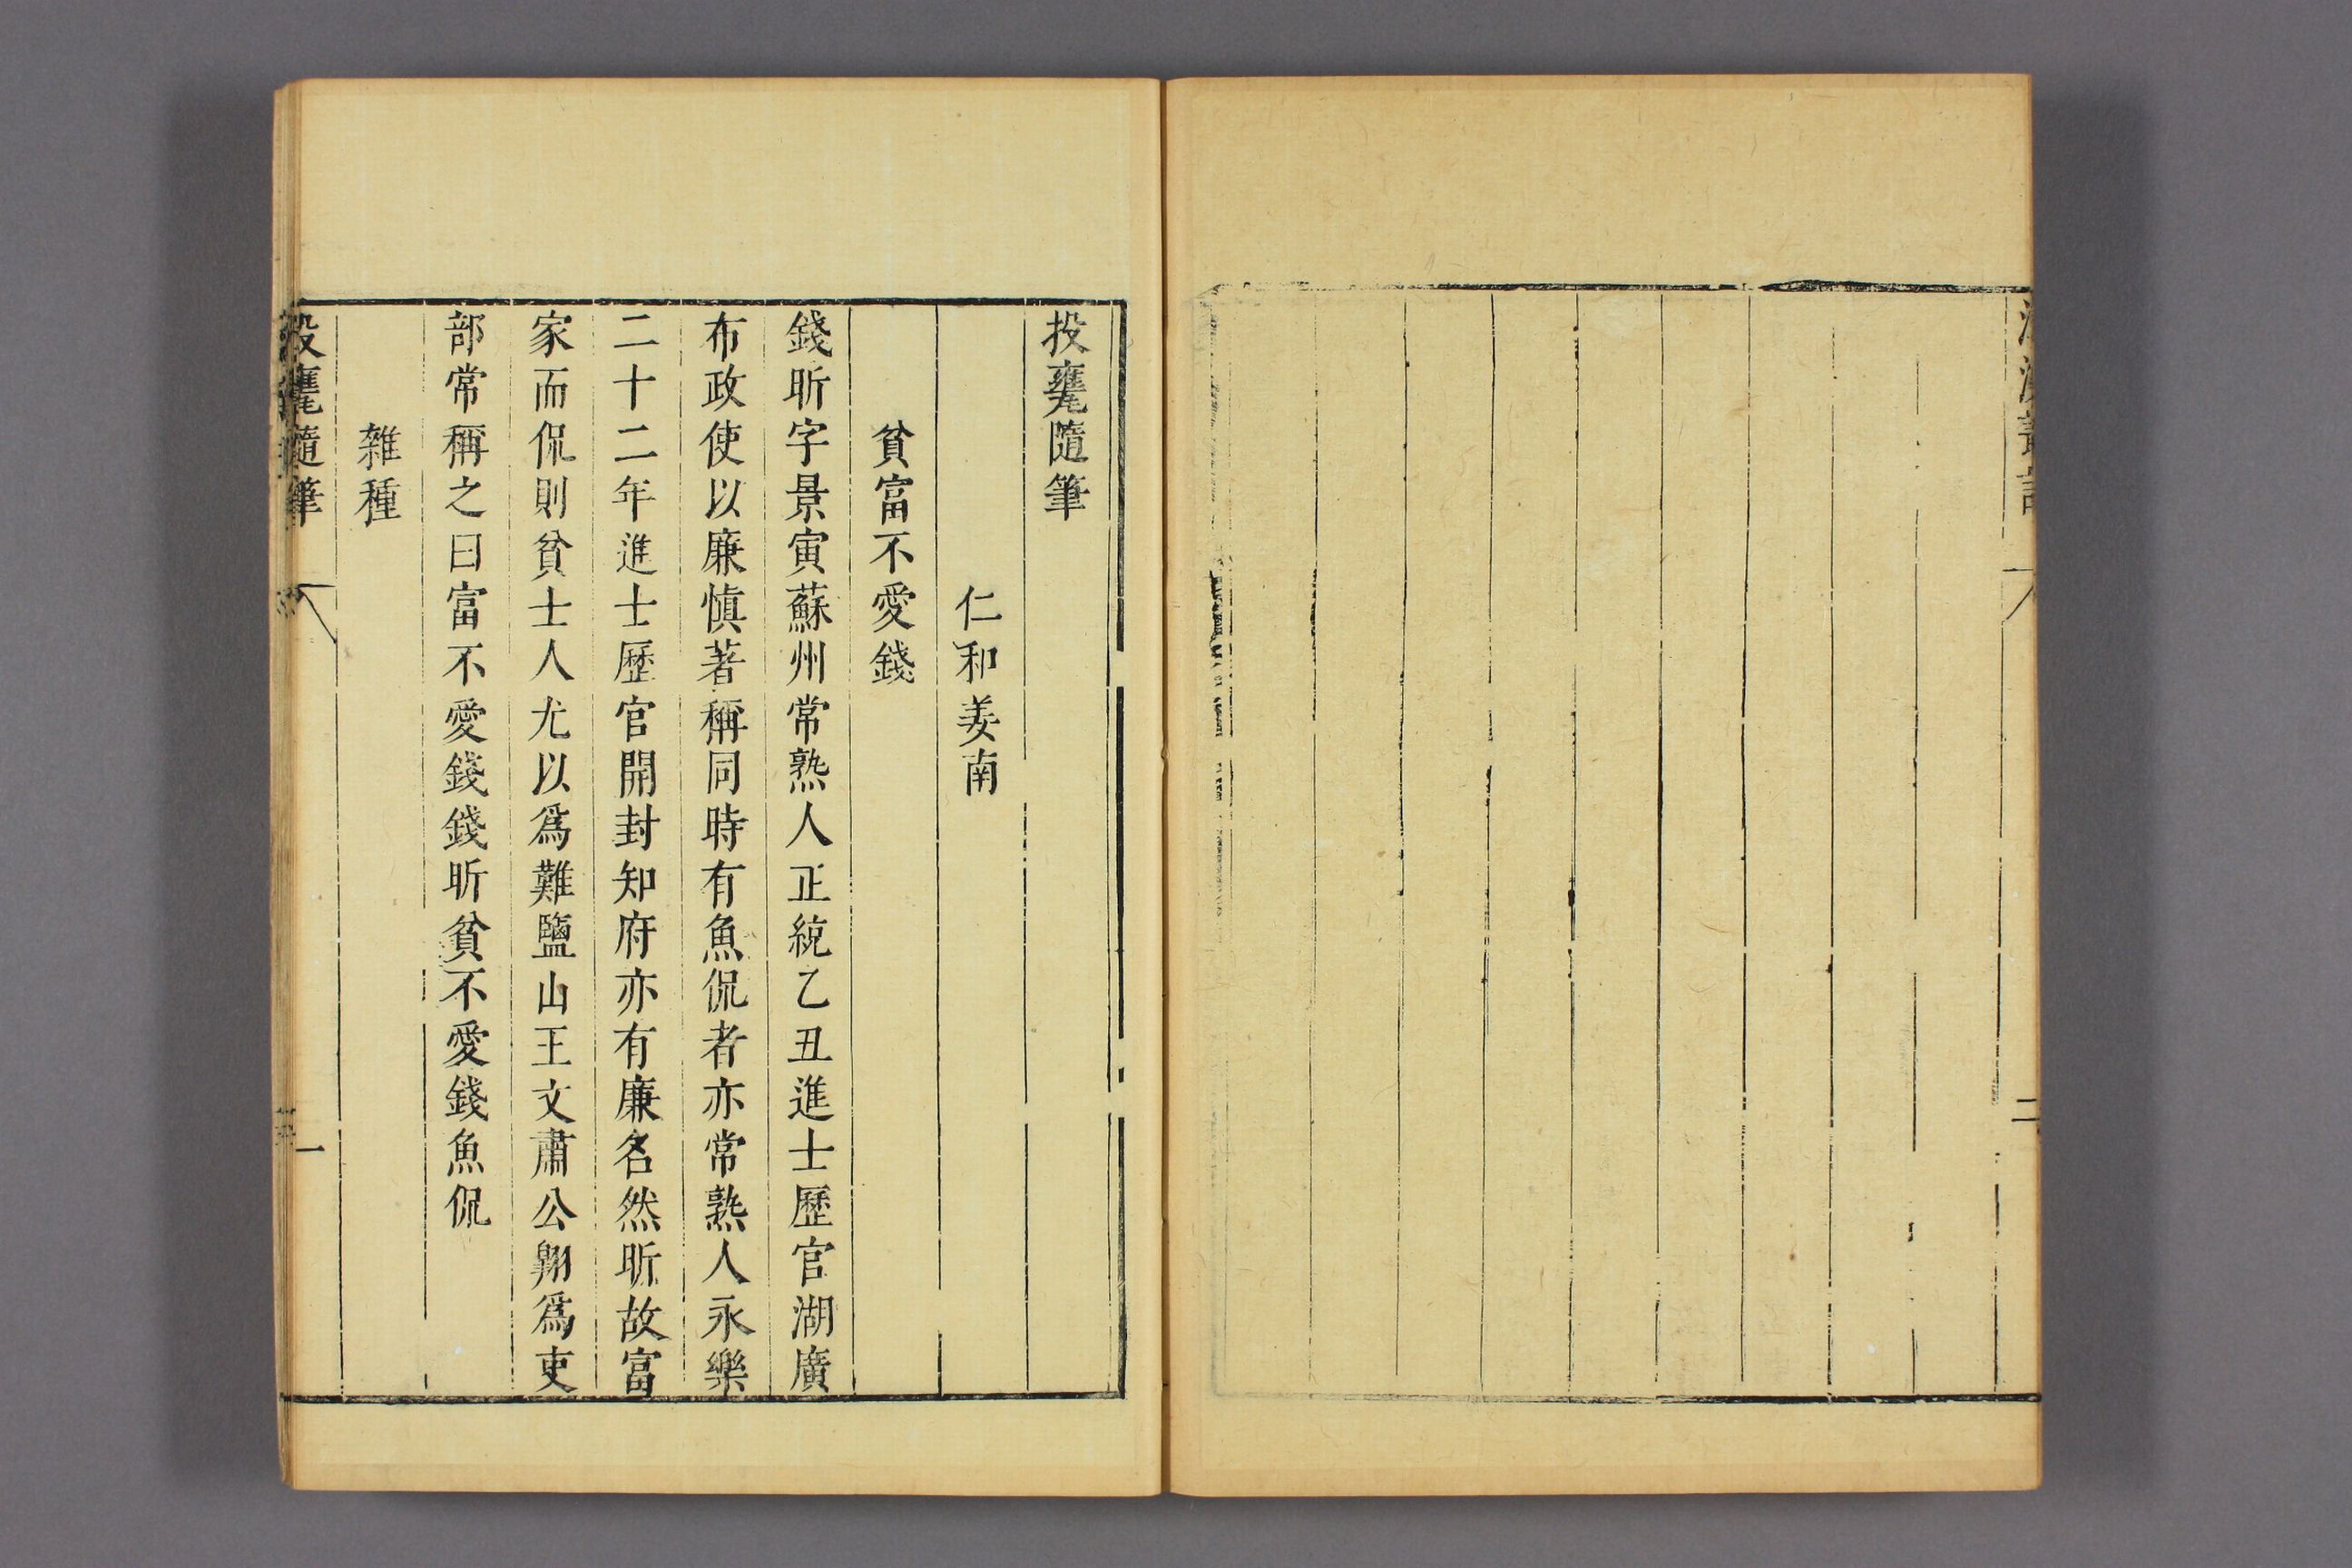 二
投甕隨筆
仁和姜南
貧富不愛錢
錢昕字景寅蘇州常熟人正統乙丑進士歷官湖廣
布政使以廉慎著稱同時有魚侃者亦常熟人永樂
二十二年進士歷官開封知府亦有廉名然昕故富
家而侃則貧士人尤以爲難鹽山王文肅公翺爲吏
部常稱之曰富不愛錢錢昕貧不愛錢魚侃
雜種
投甕隨筆 一